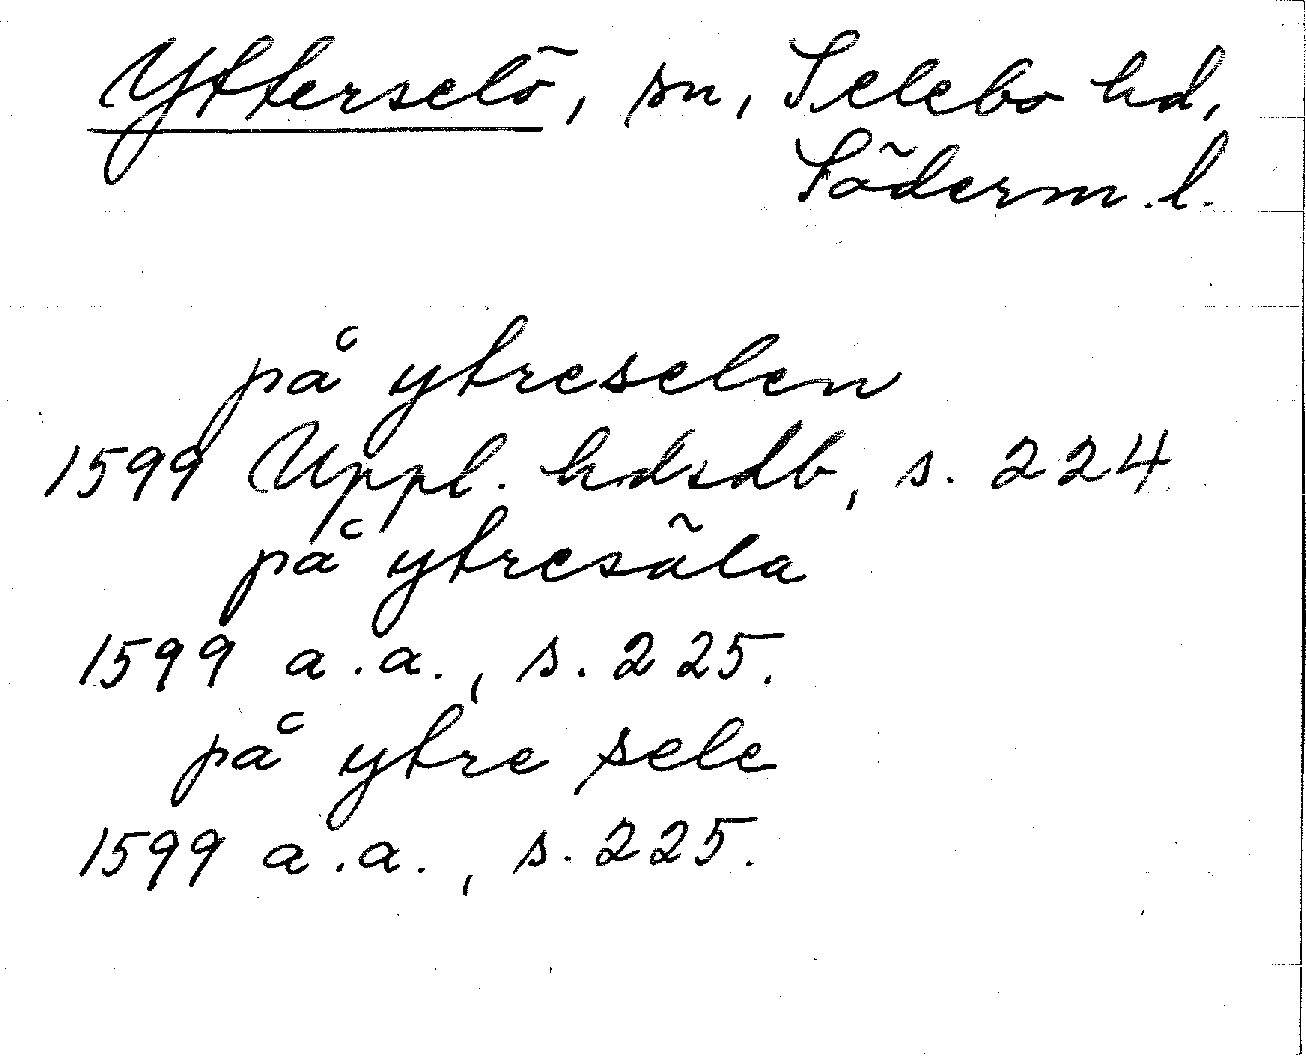 Ytterselö, sn, Selebo hd,
Söderm. l.
på ytreselen
1599 Uppl. hdsdb, s. 224
på ytresäla
1599 a.a., s. 225.
på ytre sele
1599 a.a., s. 225.